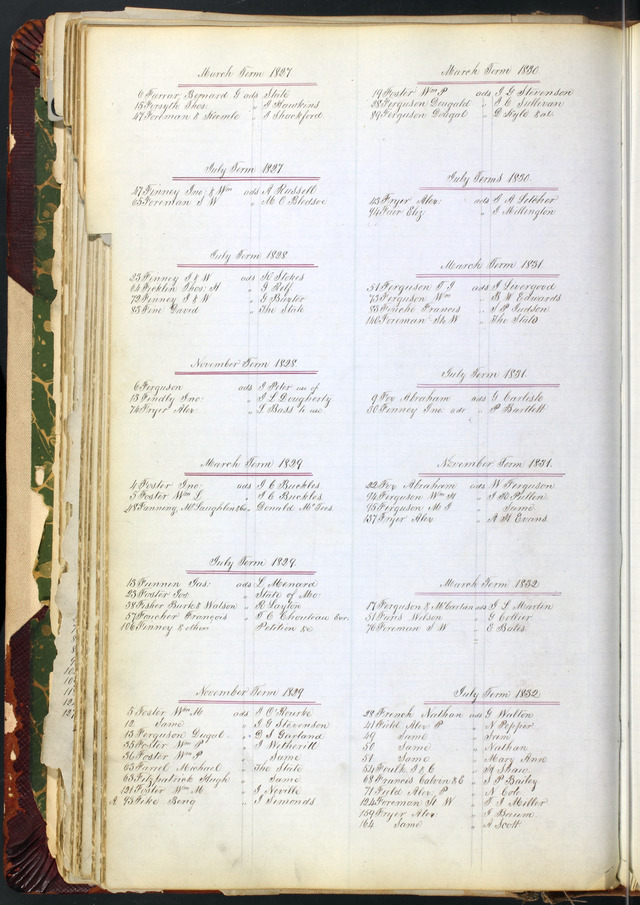 March Term 1827
6 Farrar, Bernard G ads State
15 Forsyth Thos. " I Hawkins
47 Fortman & " I Shackford
July Term 1827
47 Finney Jno. & Wm ads A Russell
65 Foreman S W " M O Bledsoe
July Term 1828
23 Finney J & W ads R Stokes
64 Ficklin Thos. H " J Relf
72 Finney J & W " G Baxter
83 Fine David " The State
November Term 1828
6 Ferguson ads J Peter use of
13 Findly Jno: " J L Dougherty
74 Fryer Alex " L Bass to use
March Term 1829
4 Foster Jno: ads J C Buckles
5 Foster Wm L " J C Buckles
48 Fanning, McLaughlin &co. " Donald McTees
July Term 1829
13 Funnen Jas: ads L Menard
23 Foster Jos " State of Mo:
38 Fisher Burk & Watson " R Payton
57 Foucher François " P C Chouteau Exr.
106 Finney & others " Petition &c
November Term 1829
5 Foster Wm M ads J O Rourke
12 Same " J G Stevenson
15 Ferguson Dugal " D S Garland
35 Foster Wm P " J Wetherill
36 Foster Wm P " Same
63 Farrel Michael " The State
65 Fitzpatrick Hugh " Same
121 Foster Wm M " J Neville
A 93 Feke Benj " J Simonds
March Term 1830
19 Foster Wm P ads J G Stevenson
38 Ferguson Dougald " J C Sullivan
89 Ferguson Dougal " D Kyle & al
July Terms 1830
43 Fryer Alex: ads J A Letcher
94 Fair Eliz " J Millington
March Term 1831
51 Ferguson P J ads J Livergood
73 Ferguson Wm " B W Edwards
88 Fouche Francis " S P Judson
146 Foreman St. W " The State
July Term 1831
9 Fox Abraham ads G Carlisle
30 Finney Jno: adr " P Bartlett
November Term 1831
22 Fox Abraham ads W Ferguson
94 Ferguson Wm H " J R Pullen
95 Ferguson M J " Same
137 Fryer Alex " A H Evans
March Term 1832
17 Ferguson & McCausland ads J L Martin
51 Faris Wilson " G Collier
76 Foreman S W " E Bates
July Term 1832
28 French Nathan ads G Walton
41 Field Alex P " N Pepper
49 Same " Sam
50 Same " Nathan
51 Same " Mary Ann
54 Foulk J & C " H Shaw
68 Francis Calvin & C " S P Bailey
71 Field Alex. P " N Cole
124 Foreman St W " T J Miller
159 Fryer Alex: " J Baum
164 Same " A Scott